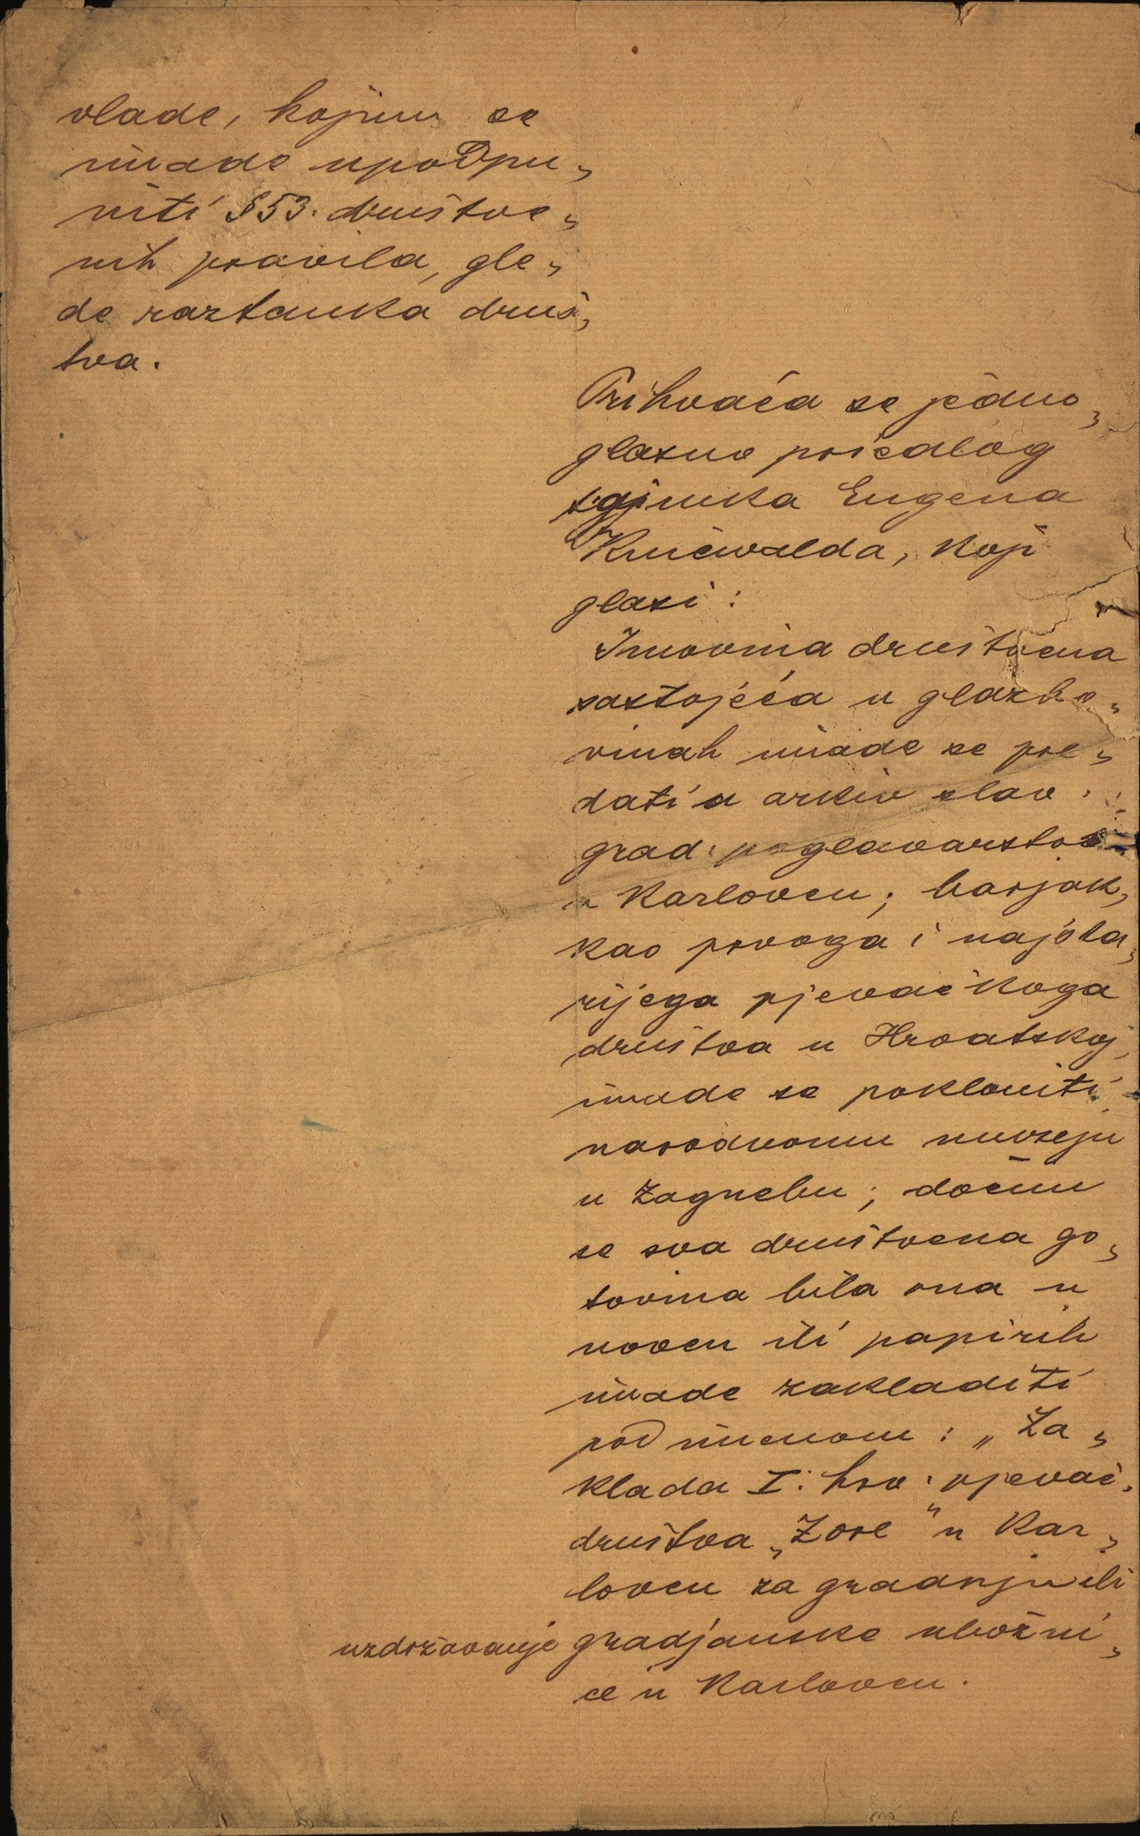 vlade, kojim se
imade upodpu„
niti §53. društve„
nih pravila, gle„
de raztanka druš„
tva.
Prihvaća se jedno„
glasno priedlog
Eugena
Kniewalda, koji
glasi:
Imovina družtvena
sastojeća u glazbo„
vinah imade se pre„
dati u arkiv slav.
grad. poglavarstva
u Karlovcu; barjak,
kao prvoga i najsta„
rijega pjevačkoga
društva u Hrvatskoj,
imade se pokloniti
narodnomu muzeju
u Zagrebu; dočim
se sva društvena go„
tovina bila ona u
novcu ili papirih
imade zakladiti
pod imenom: „Za„
klada I. hrv. pjevač.
društva „Zore“ u Kar„
lovcu za gradnju ili
uzdržavanje gradjanske ubožni„
ce u Karlovcu.